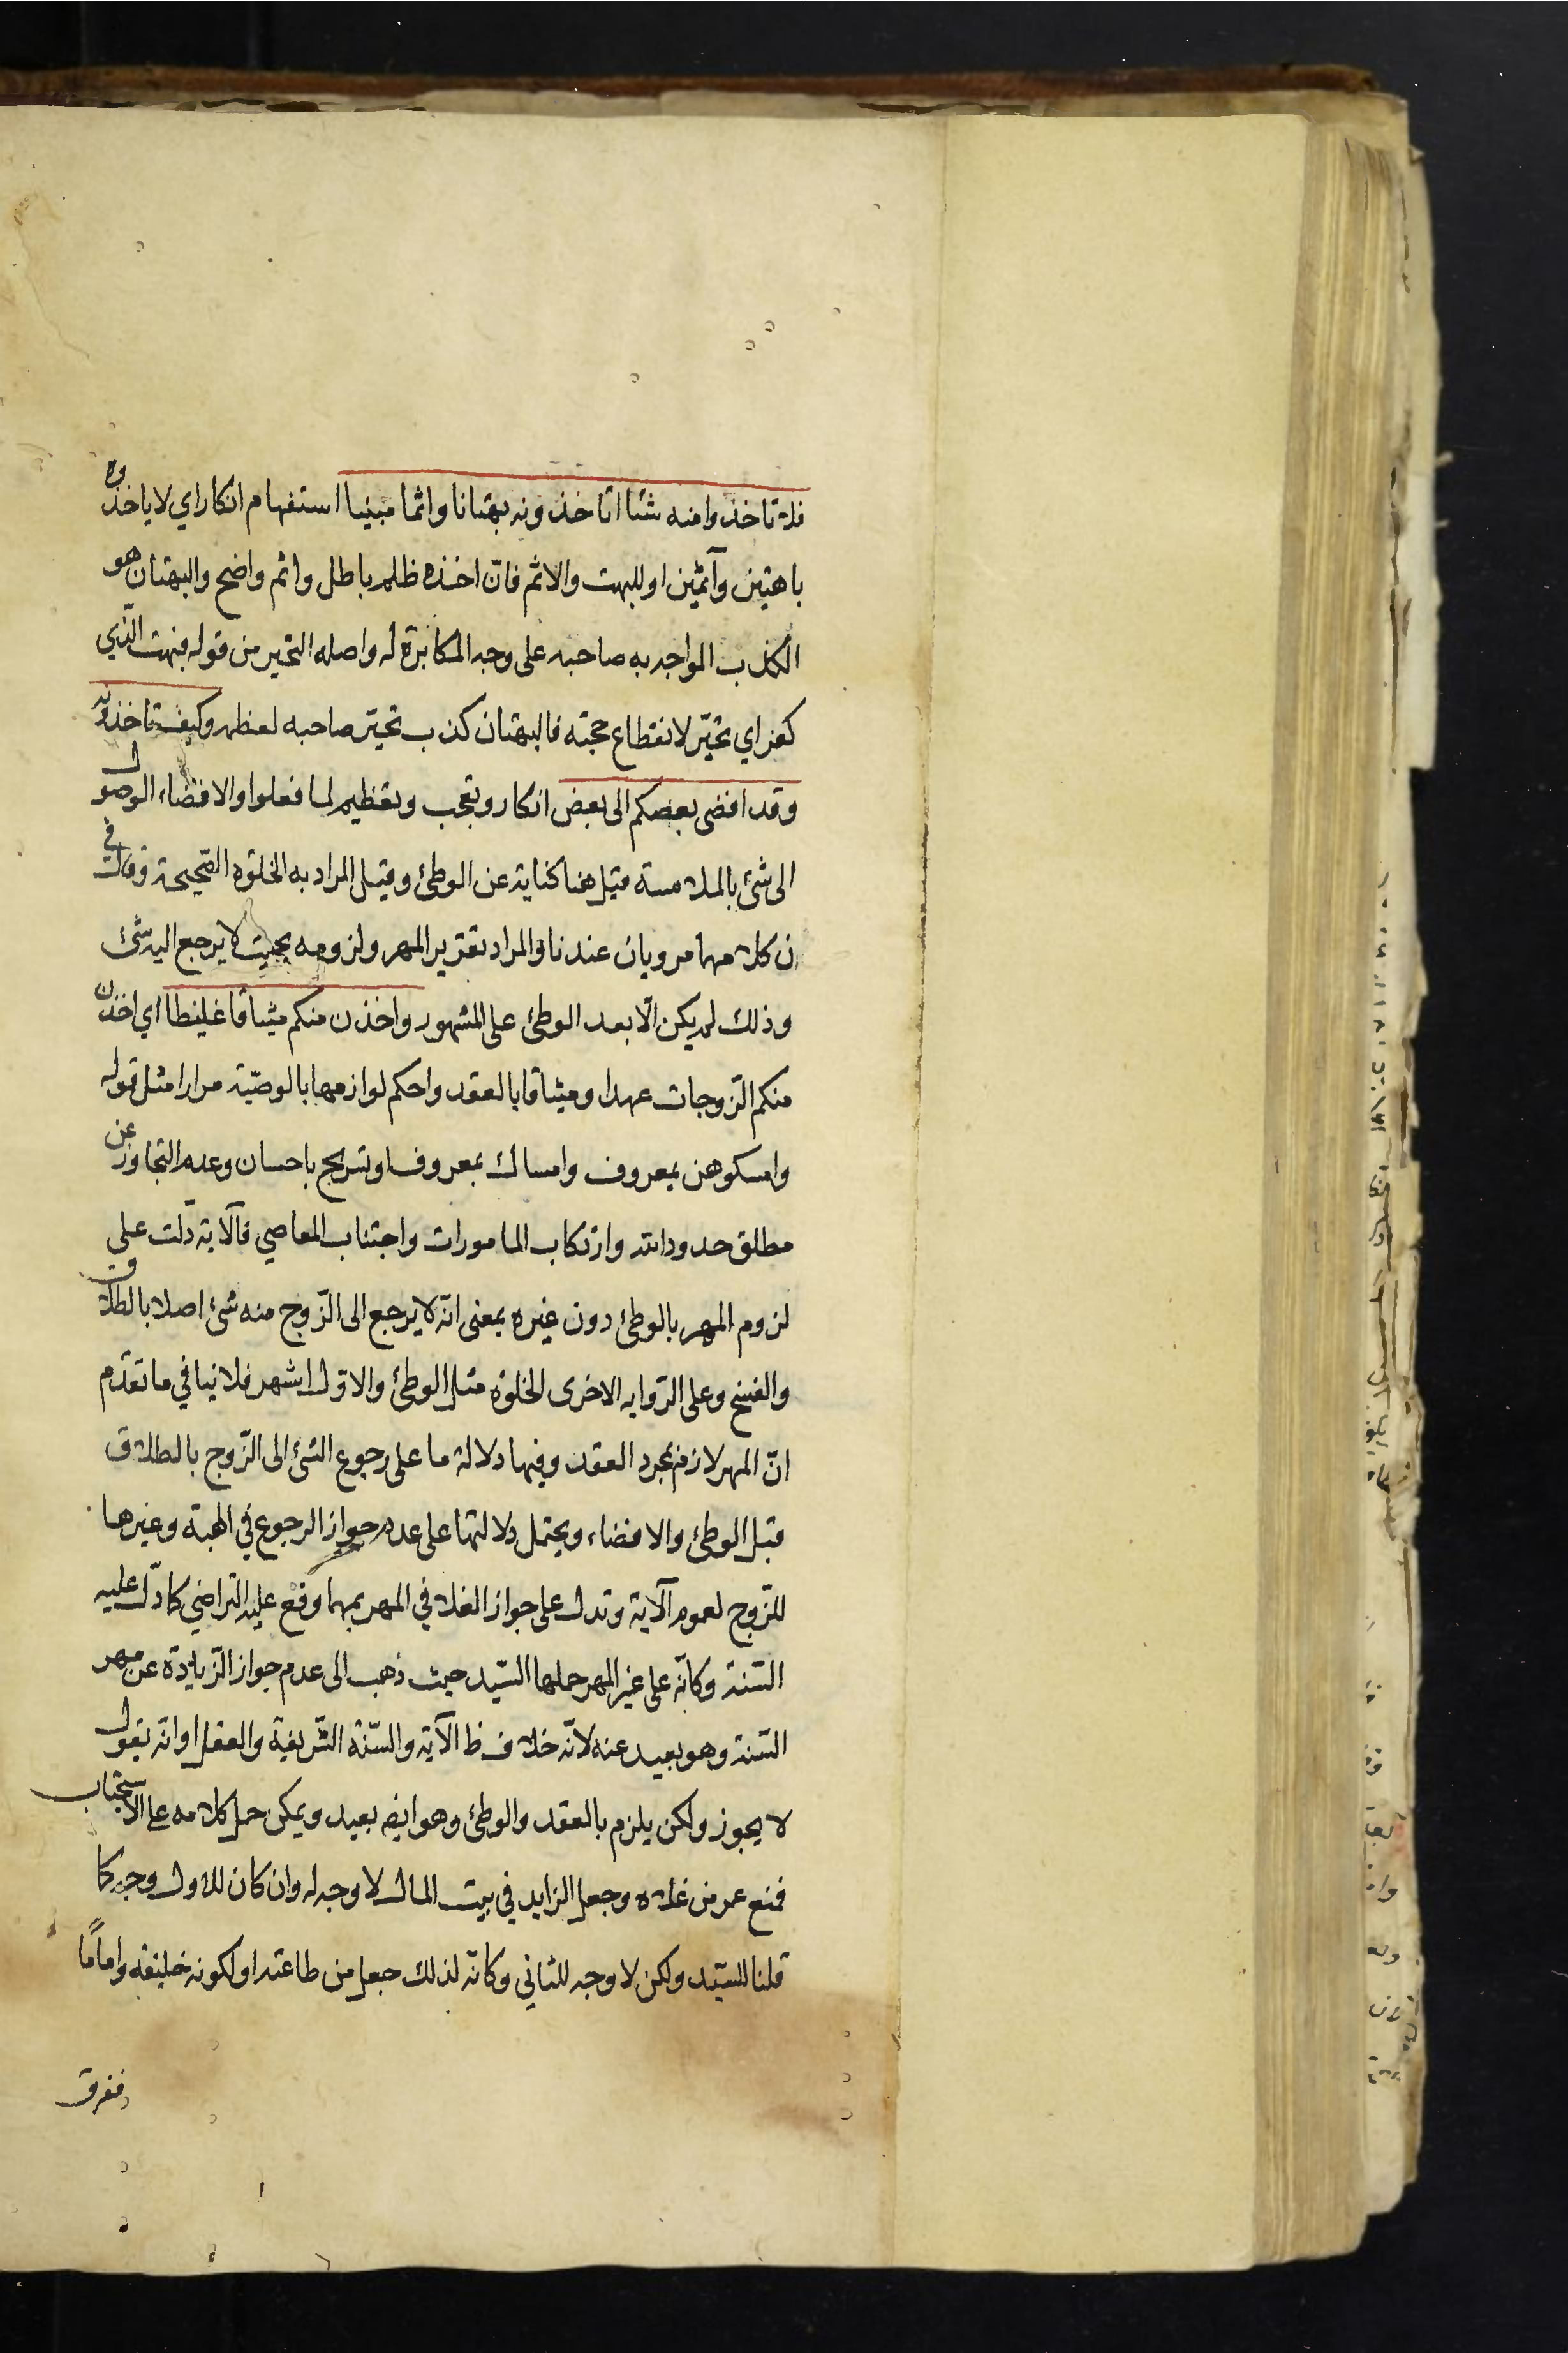 فلا تاخذوا منه شئا اتاخذونه بهتانا واثما مبينا استفهام انكار اي لا ياخذوه
باهتين وآثمين او للبهت والاثم فانّ اخذه ظلم باطل واثم واضح والبهتان هو
الكذب المواجه به صاحبه على وجه المكابرة له واصله التحير من قوله فبهت الّذي
كفر اي تحيّر لانقطاع حجته فالبهتان كذب تحيّر صاحبه لعظمه وكيف تاخذونه
وقد افضى بعضكم الى بعض انكار وتعجب وتعظيم لما فعلوا والافضاء الوصول
الى شئ بالملامسة قيل هنا كناية عن الوطئ وقيل المراد به الخلوة الصّحيحة وقال في
ن كلا مهما مرويان عندنا والمراد تقرير المهر ولزومه بحيث لا يرجع اليه شئ
وذلك لم يكن الّا بعد الوطئ على المشهور واخذن منكم ميثاقا غليظا اي اخذن
منكم الزّوجات عهدا وميثاقا بالعقد واحكم لوازمها بالوصيّة مرارا مثل قوله
وامسكوهن بمعروف وامساك بمعروف او تسريح باحسان وعدم التجاوز عن
مطلق حدود الله وارتكاب المامورات واجتناب المعاصي فالآية دلّت على
لزوم المهر بالوطئ دون غيره بمعنى انّه لا يرجع الى الزّوج منه شئ اصلا بالطلاق
والفسخ وعلى الرّوايه الاخرى الخلوة مثل الوطئ والاوّل اشهر فلا ينافي ما تقدّم
انّ المهر لازم بمجرد العقد وفيها دلالة ما على رجوع الشئ الى الزّوج بالطلاق
قبل الوطئ والافضاء ويحتمل دلالتها على عدم جواز الرجوع في الهبة وغيرها
للزّوج لعموم الآية وتدل على جواز الغلا في المهر بمهما وقع عليه التراضي كما دلّ عليه
السّنة وكانّه على غير المهر حملها السّيد حيث ذهب الى عدم جواز الزّيادة عن مهر
السّنة وهو بعيد عنه لانّه خلاف ظ الآية والسّنة الشّريفة والعقل او انّه يقول
لا يجوز ولكن يلزم بالعقد والوطئ وهو ايض بعيد ويمكن حمل كلامه على الاستحباب
فمنع عمر من غلاه وجعل الزايد في بيت المال لا وجه له وان كان للاول وجه كما
قلنا للسّيد ولكن لا وجه للثاني وكانّه لذلك جعل من طاعته او لكونه خليفة واماماً
ففرق